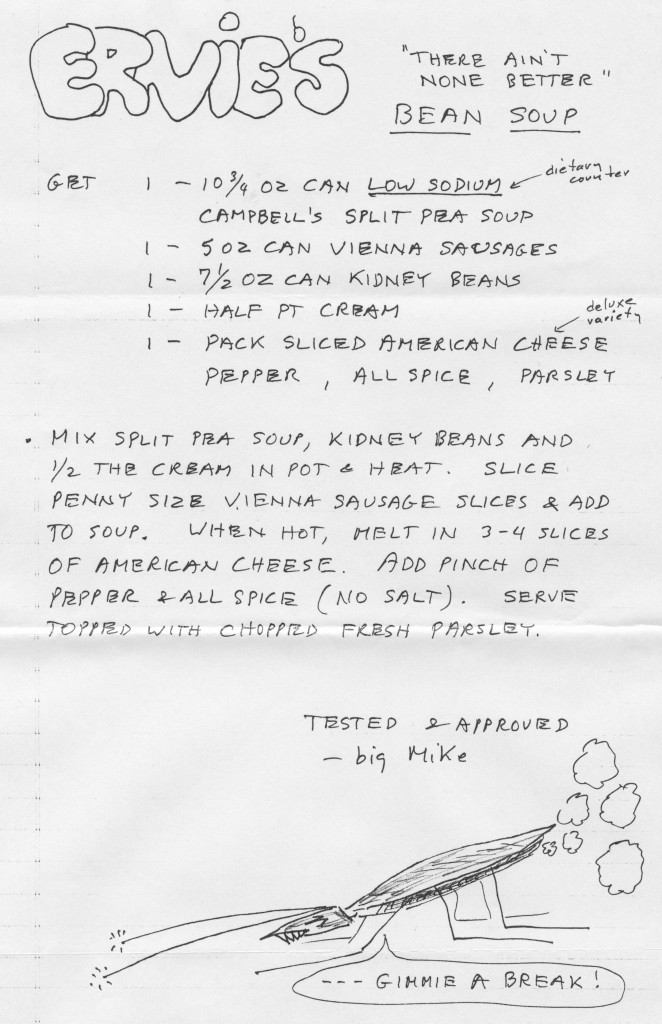 ERVIE'S
"THERE AIN'T
NONE BETTER"
BEAN SOUP
GET 1 - 10 3/4 OZ CAN LOW SODIUM
dietary
counter
CAMPBELL'S SPLIT PEA SOUP
1 - 5 OZ CAN VIENNA SAUSAGES
1 - 7 1/2 OZ CAN KIDNEY BEANS
1 - HALF PT CREAM
deluxe
variety
1 - PACK SLICED AMERICAN CHEESE
PEPPER, ALL SPICE, PARSLEY
• MIX SPLIT PEA SOUP, KIDNEY BEANS AND
1/2 THE CREAM IN POT & HEAT. SLICE
PENNY SIZE VIENNA SAUSAGE SLICES & ADD
TO SOUP. WHEN HOT, MELT IN 3-4 SLICES
OF AMERICAN CHEESE. ADD PINCH OF
PEPPER & ALL SPICE (NO SALT). SERVE
TOPPED WITH CHOPPED FRESH PARSLEY.
TESTED & APPROVED
- big MiKe
--- GIMMIE A BREAK!